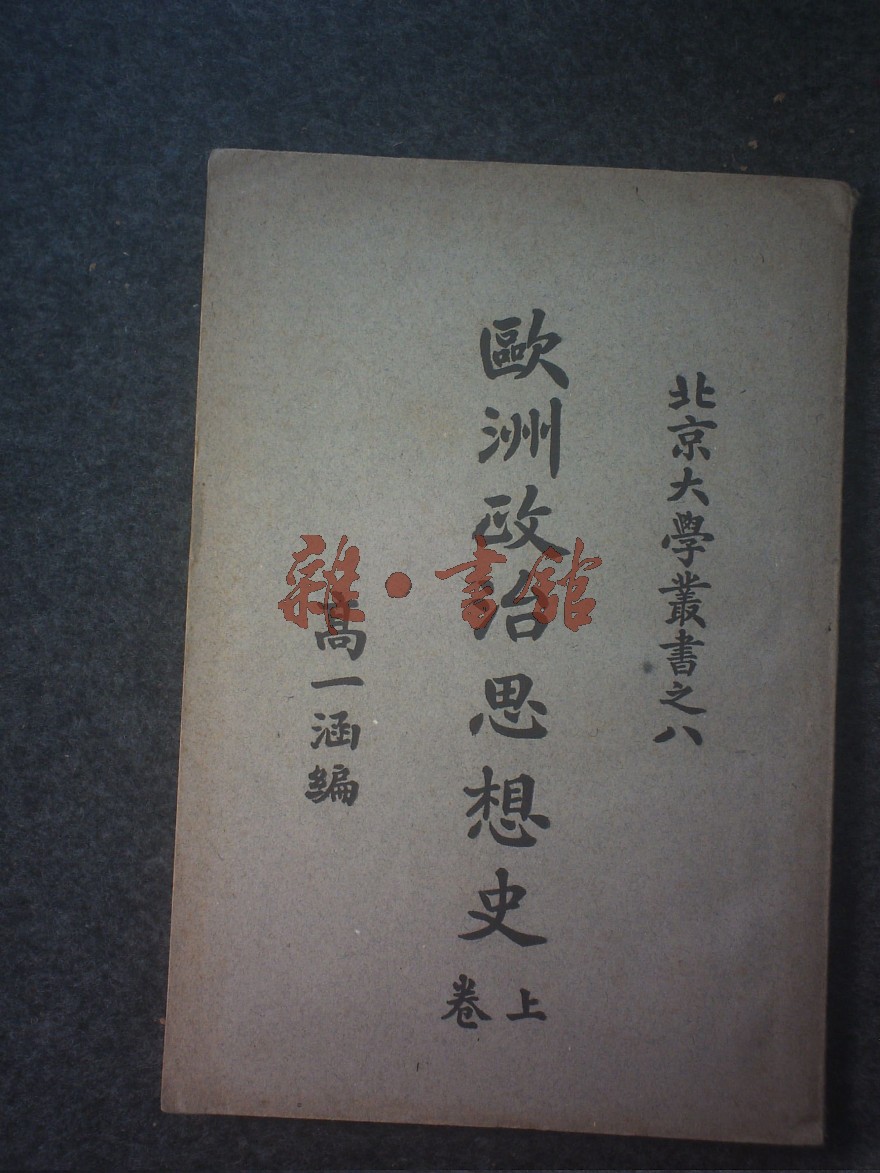 北京大學叢書之八
歐洲政治思想史
上卷
高一涵編
雜·書館